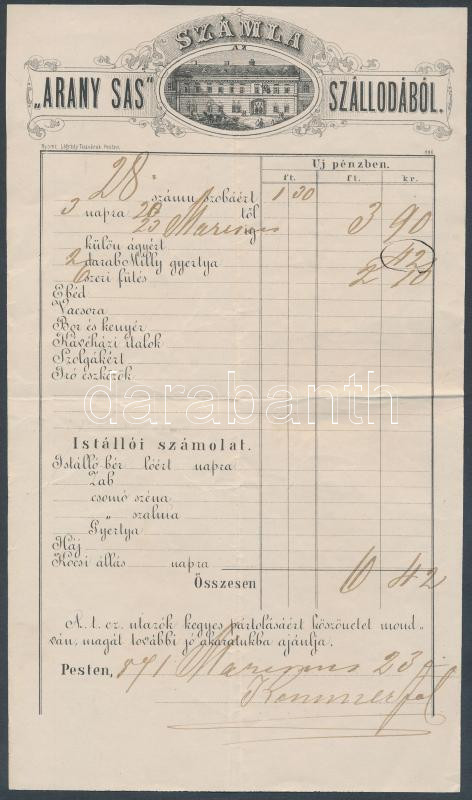 SZÁMLA
AZ
„ARANY SAS" SZÁLLODÁBÓL.
Nyomt. Légrády Testvérek Pesten. 186
Uj pénzben.
ft. ft. kr.
28. számu szobáért 1 30
3 napra 20 tól 3 90
23 Marcius ig
külön ágyért
2 darab Milly gyertya 42
6 szeri fütés 2 10
Ebéd
Vacsora
Bor és kenyér
Kávéházi italok
Szolgákért
Iró eszközök
darabanth
Istállói számolat.
Istálló-bér lóért napra
Zab
csomó széna
„ szalma
Gyertya
Háj
Kocsi állás napra
Összesen 6 42
A. t. cz. utazók kegyes pártolásáért köszönetet mond-
ván, magát további jó akaratukba ajánlja.
Pesten, 871 Marcius 23